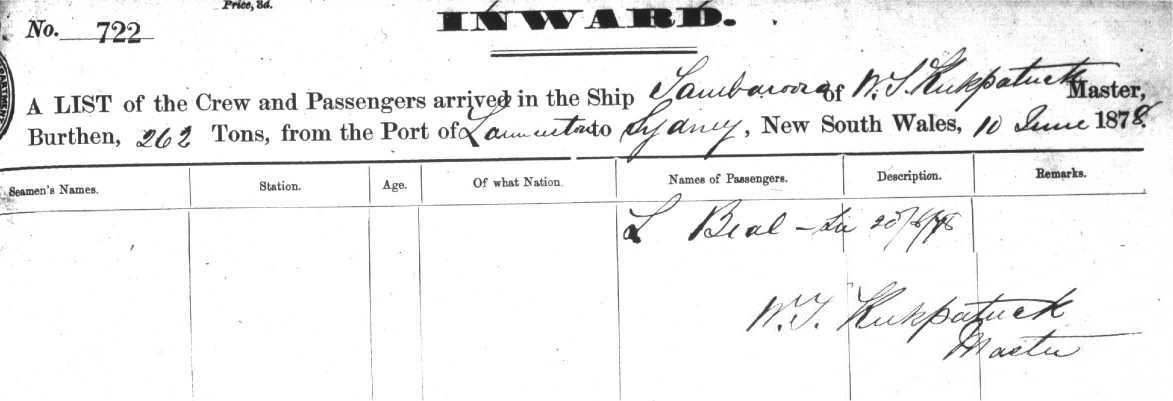 Price, 3d.
No. 722
INWARD.
A LIST of the Crew and Passengers arrived in the Ship Tambaroora of W. T. Kirkpatrick Master,
Burthen, 262 Tons, from the Port of Launceston to Sydney, New South Wales, 10 June 1878.
Seamen's Names. Station. Age. Of what Nation. Names of Passengers. Description. Remarks.
L Beal
W. T. Kirkpatrick
Master